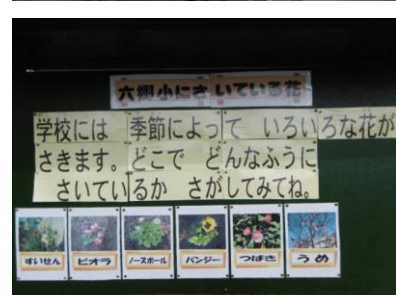 六郷小にさいている花
学校には 季節によって いろいろな花が
さきます。どこで どんなふうに
さいているか さがしてみてね。
すいせん ビオラ ノースポール パンジー つばき うめ